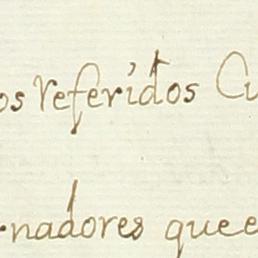 os referidos Cu
rnadores quee